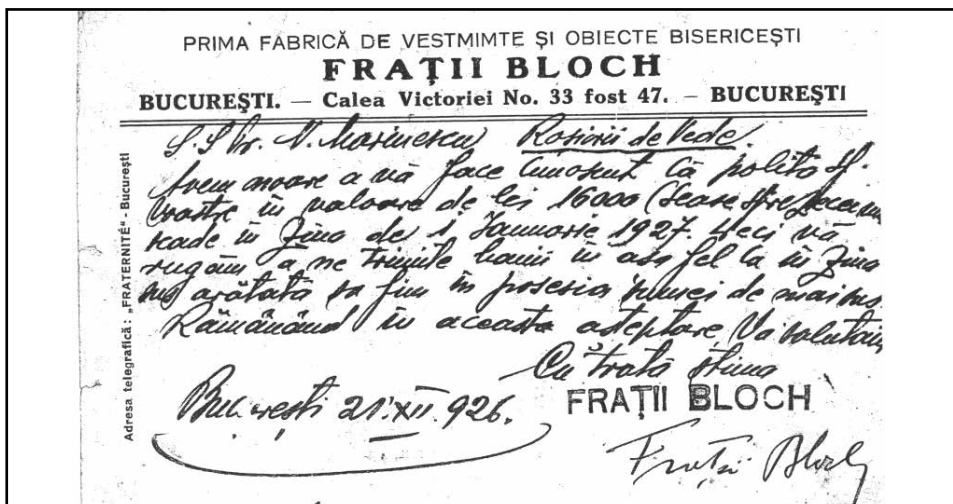 PRIMA FABRICĂ DE VESTMIMTE ȘI OBIECTE BISERICEȘTI
FRAȚII BLOCH
BUCUREȘTI. — Calea Victoriei No. 33 fost 47. — BUCUREȘTI
Adresa telegrafică: „FRATERNITÉ" - București
N. Marinescu Roșiorii de Vede
Avem onoare a vă face cunoscut că polița sf.
voastre în valoare de lei 16000
scade în ziua de 1 Ianuarie 1927. Deci vă
rugăm a ne trimite banii în așa fel ca în ziua
arătată sa fim în posesia sumei de mai sus.
Rămânând în aceasta asteptare, Va salutăm
Cu toată stima
București 21.XII.926.
FRAȚII BLOCH
Frații Bloch